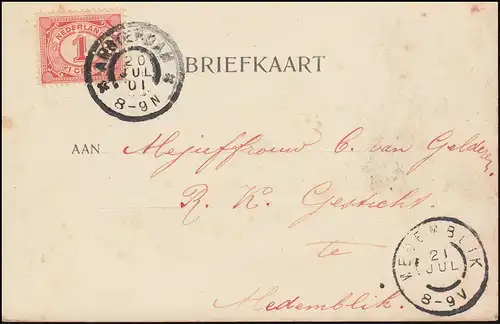 NEDERLAND
1
CENT
AMSTERDAM
20
JUL
01
8-9N
BRIEFKAART
AAN Mejuffrouw C. van Gelderen
R. K. Gesticht.
te
Medemblik.
MEDEMBLIK
21
JUL
8-9V